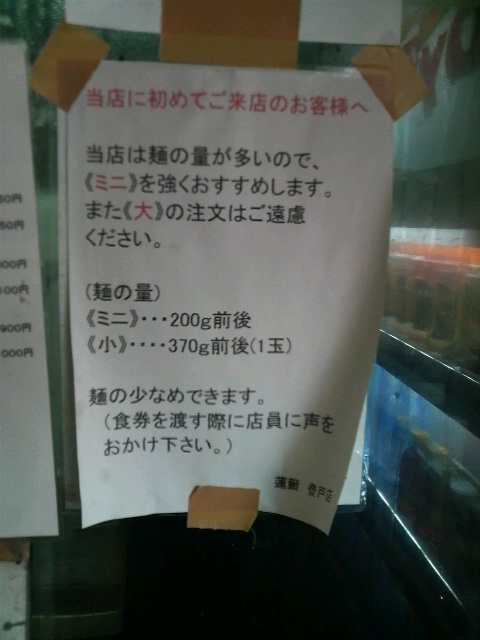 当店に初めてご来店のお客様へ
当店は麺の量が多いので、
《ミニ》を強くおすすめします。
また《大》の注文はご遠慮
ください。
(麺の量)
《ミニ》・・・200g前後
《小》・・・・370g前後(1玉)
麺の少なめできます。
(食券を渡す際に店員に声を
おかけ下さい。)
登戸店
900円
000円